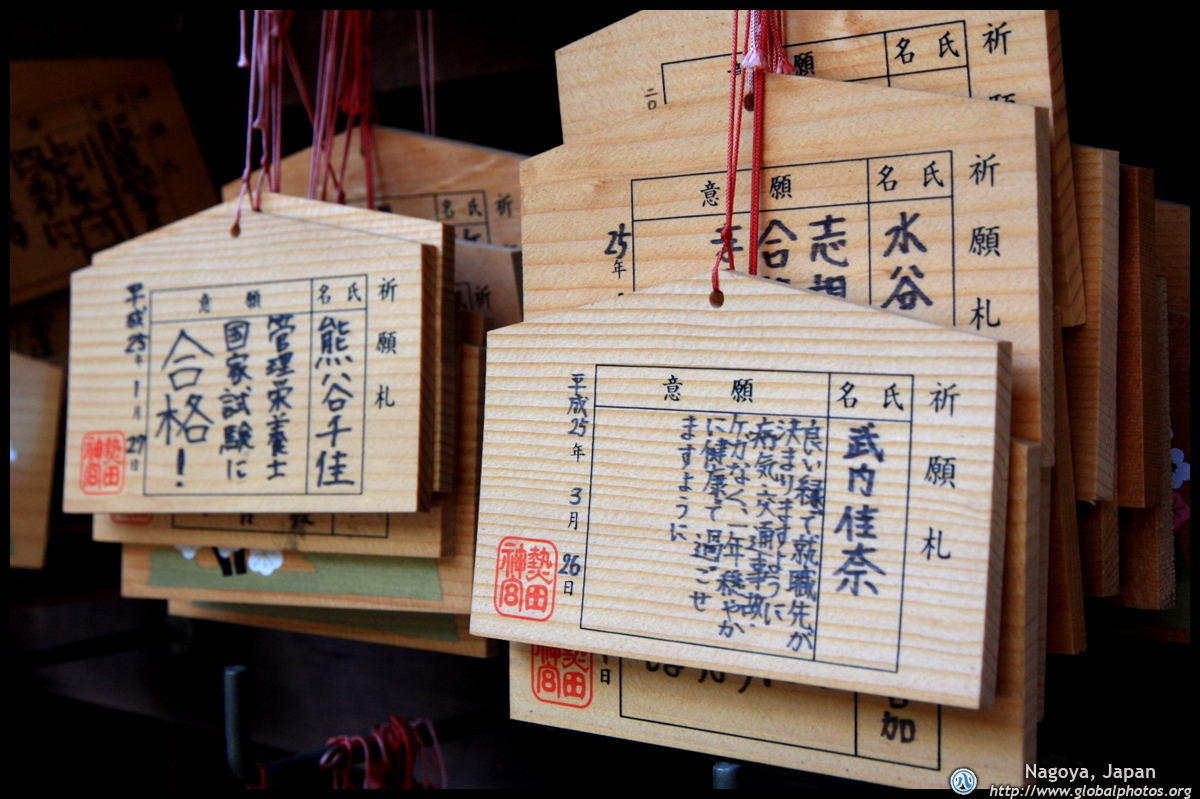 祈願札
氏名
武内佳奈
願意
良い縁で就職先が
決まりますように
病気、交通事故、
ケガなく、一年穏やか
に健康で過ごせ
ますように
平成25年 3月 26日
熱田
神宮
祈願札
氏名
熊谷千佳
願意
管理栄養士
国家試験に
合格!
平成25年 1月 27日
熱田
神宮
祈願札
氏名
水谷
願意
志望
合
25年
祈
氏名
願
二〇
祈
氏名
祈
加
日
熱田
神宮
Nagoya, Japan
http://www.globalphotos.org